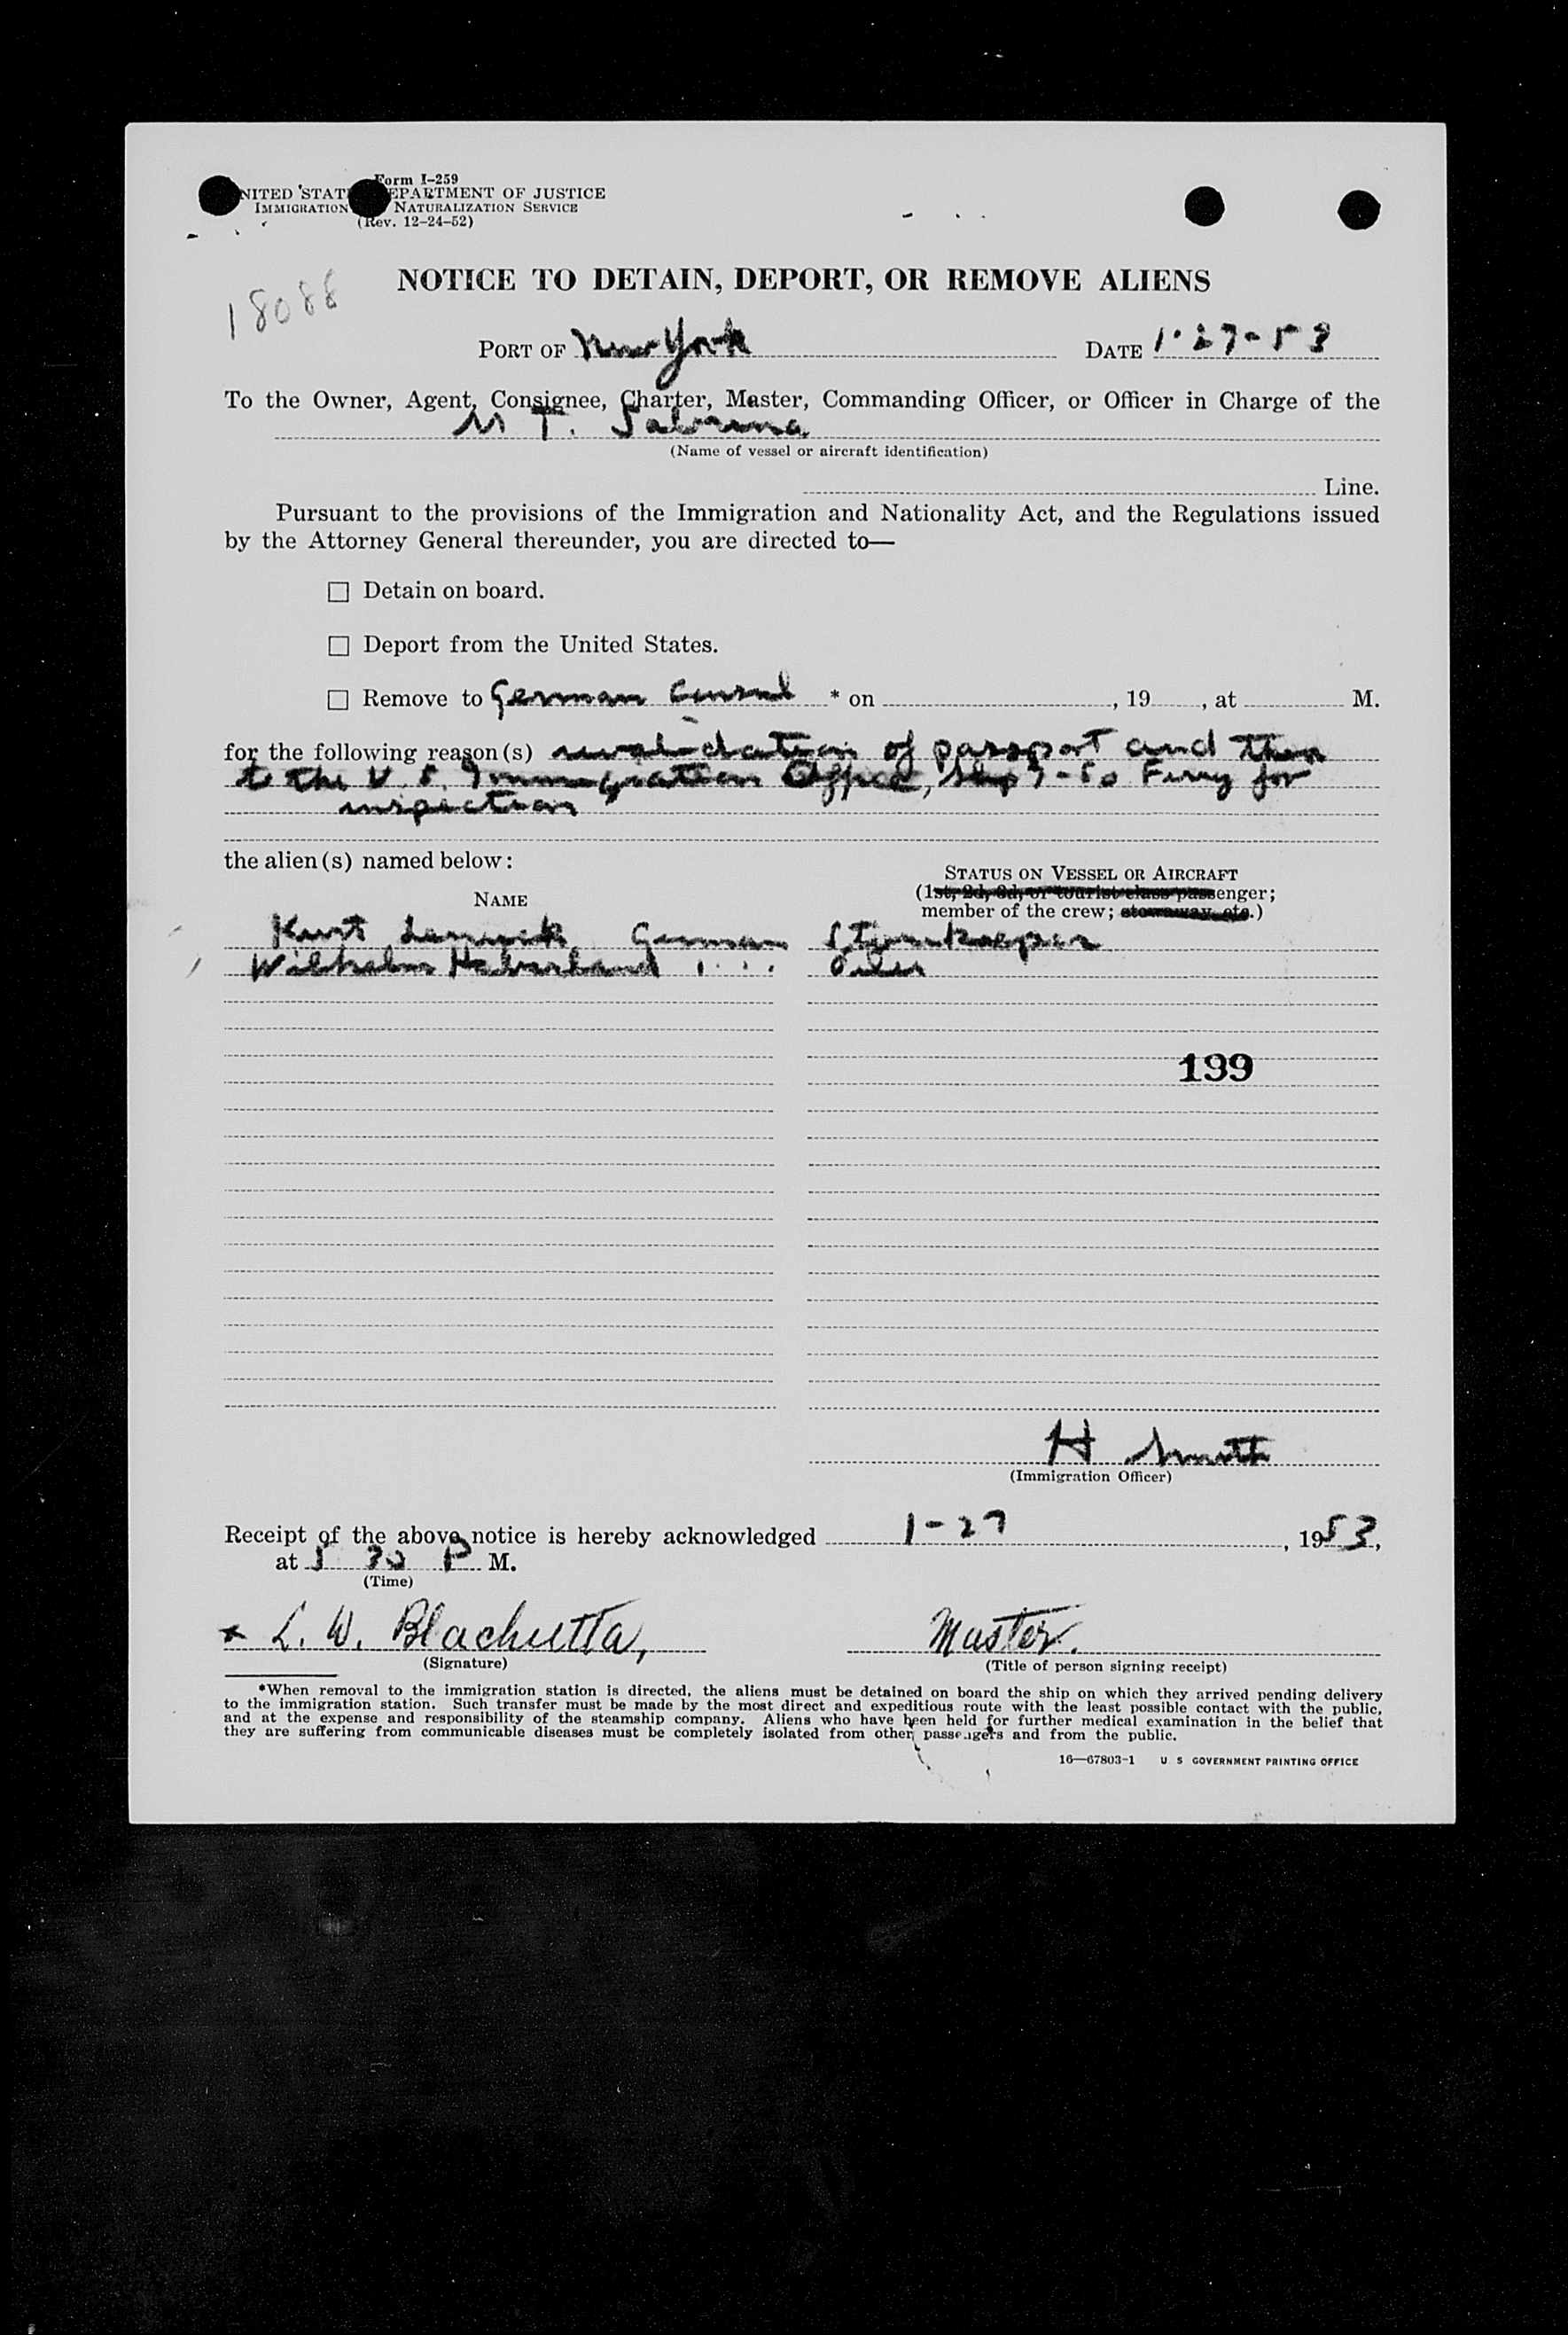 Form I-259
NITED STAT EPARTMENT OF JUSTICE
IMMIGRATION NATURALIZATION SERVICE
(Rev. 12-24-52)
18088
NOTICE TO DETAIN, DEPORT, OR REMOVE ALIENS
PORT OF New York DATE 1-27-53
To the Owner, Agent, Consignee, Charter, Master, Commanding Officer, or Officer in Charge of the
M T. Sabrina
(Name of vessel or aircraft identification)
Line.
Pursuant to the provisions of the Immigration and Nationality Act, and the Regulations issued
by the Attorney General thereunder, you are directed to—
☐ Detain on board.
☐ Deport from the United States.
☐ Remove to German Consul * on , 19 , at M.
for the following reason(s) revalidation of passport and then
to the U. S. Immigration Office, Ferry for
inspection
the alien(s) named below:
STATUS ON VESSEL OR AIRCRAFT
NAME
(1st, 2d, 3d, or tourist class passenger;
member of the crew; stowaway, etc.)
Kurt German Storekeeper
Wilhelm Haberland " Oiler
199
H Smith
(Immigration Officer)
Receipt of the above notice is hereby acknowledged 1-27, 1953,
at 5 30 P M.
(Time)
x L. W. Blachutta, Master.
(Signature) (Title of person signing receipt)
*When removal to the immigration station is directed, the aliens must be detained on board the ship on which they arrived pending delivery
to the immigration station. Such transfer must be made by the most direct and expeditious route with the least possible contact with the public,
and at the expense and responsibility of the steamship company. Aliens who have been held for further medical examination in the belief that
they are suffering from communicable diseases must be completely isolated from other passengers and from the public.
16—67803-1 U S GOVERNMENT PRINTING OFFICE